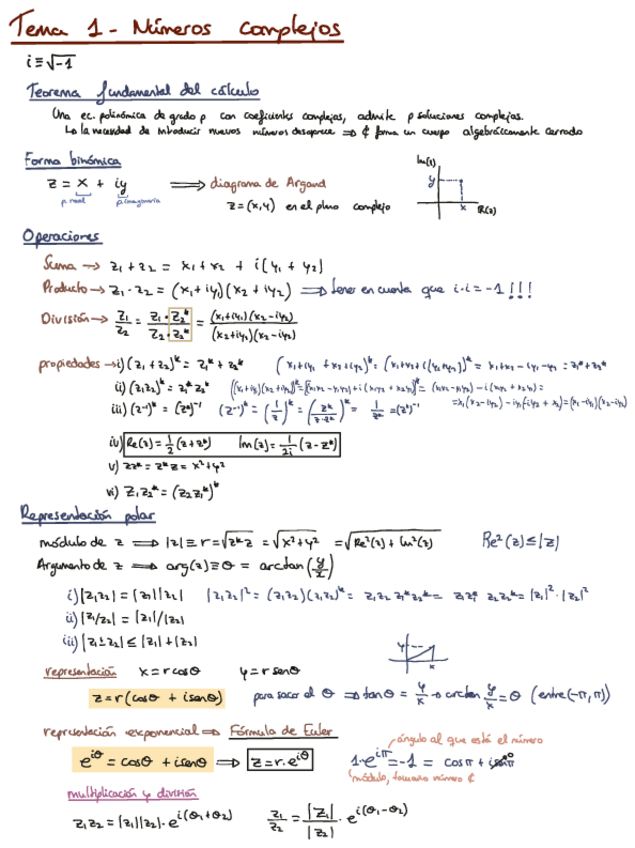 Tema 1 - Números complejos
i ≡ √-1
Teorema fundamental del cálculo
Una ec. polinómica de grado p con coeficientes complejos, admite p soluciones complejas.
La necesidad de introducir nuevos números desaparece ⇒ ℂ forma un cuerpo algebráicamente cerrado
Forma binómica
Im(z)
z = x + iy ⟹ diagrama de Argand
y
p. real p. imaginaria
z = (x,y) en el plano complejo
x R(z)
Operaciones
Suma → z₁ + z₂ = x₁ + x₂ + i(y₁ + y₂)
Producto → z₁ · z₂ = (x₁ + iy₁)(x₂ + iy₂) ⟹ tener en cuenta que i·i = -1 !!!
División → z₁/z₂ = z₁·z₂*/z₂·z₂* = (x₁+iy₁)(x₂-iy₂)/(x₂+iy₂)(x₂-iy₂)
propiedades → i) (z₁ + z₂)* = z₁* + z₂*
ii) (z₁z₂)* = z₁* z₂*
iii) (z⁻¹)* = (z*)⁻¹ (z⁻¹)* = (1/z)* = (z*/z·z*)* = 1/z* = (z*)⁻¹
iv) Re(z) = 1/2 (z + z*) Im(z) = 1/2i (z - z*)
v) zz* = z*z = x² + y²
vi) z₁z₂* = (z₂z₁*)*
Representación polar
módulo de z ⟹ |z| ≡ r = √z*z = √x² + y² = √Re²(z) + Im²(z) Re²(z) ≤ |z|
Argumento de z ⟹ arg(z) ≡ θ = arctan(y/x)
i) |z₁z₂| = |z₁||z₂| |z₁z₂|² = (z₁z₂)(z₁z₂)* = z₁z₂ z₁*z₂* = z₁z₁* z₂z₂* = |z₁|²·|z₂|²
ii) |z₁/z₂| = |z₁|/|z₂|
iii) |z₁±z₂| ≤ |z₁| + |z₂|
y
x
representación x = r cosθ y = r senθ
z = r(cosθ + isenθ) para sacar el θ ⇒ tanθ = y/x → arctan y/x = θ (entre(-π, π))
representación exponencial ⟹ Fórmula de Euler
ángulo al que está el número
e^{iθ} = cosθ + isenθ ⟹ z = r·e^{iθ} 1·e^{iπ} = -1 = cosπ + isenπ 0
módulo, tamaño número ℂ
multiplicación y división
z₁z₂ = |z₁||z₂|·e^{i(θ₁+θ₂)} z₁/z₂ = |z₁|/|z₂| · e^{i(θ₁-θ₂)}